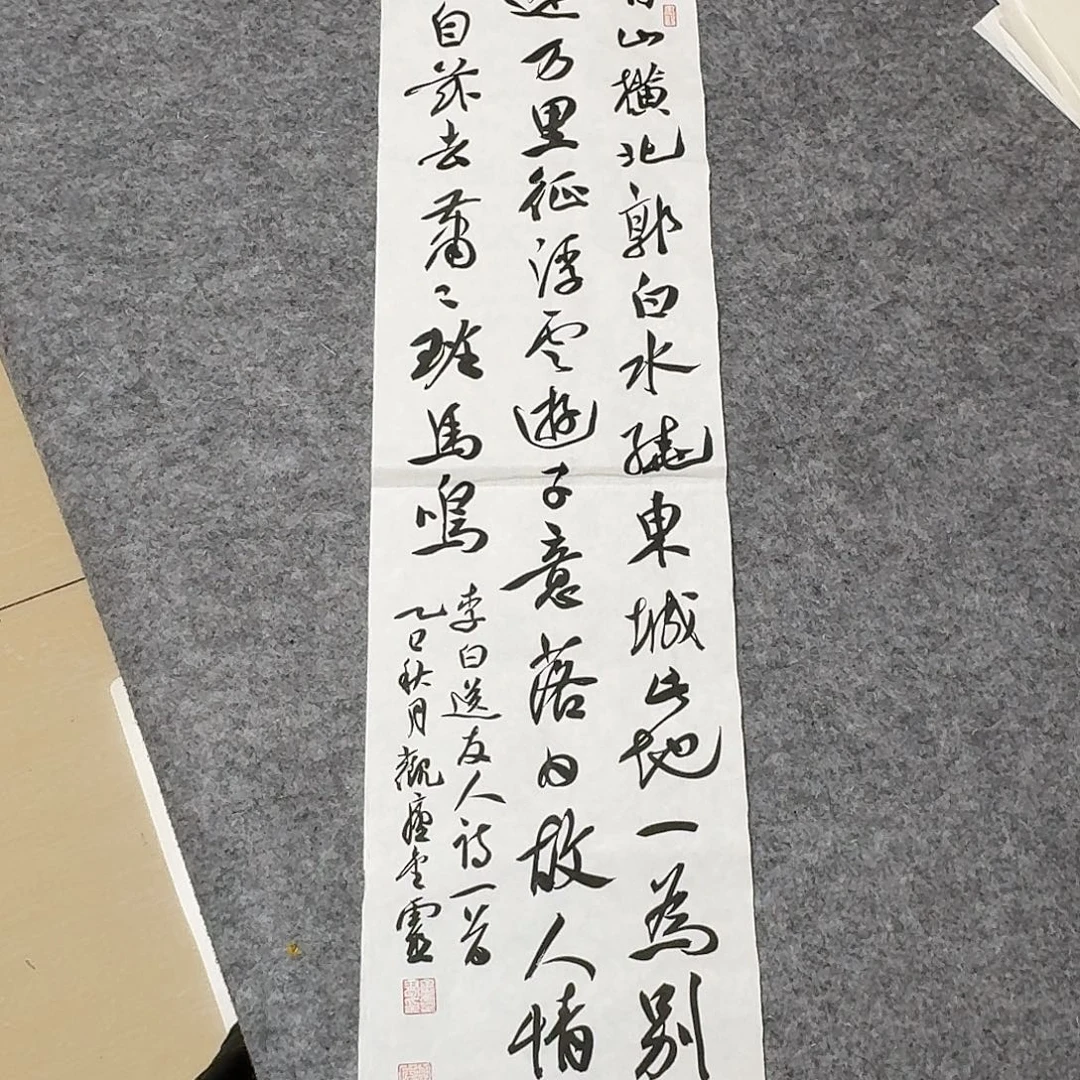 山橫北郭白水繞東城此地一為別
万里征浮雲遊子意落日故人情
自茲去蕭〻班馬鳴
李白送友人詩一首
乙巳秋月觀